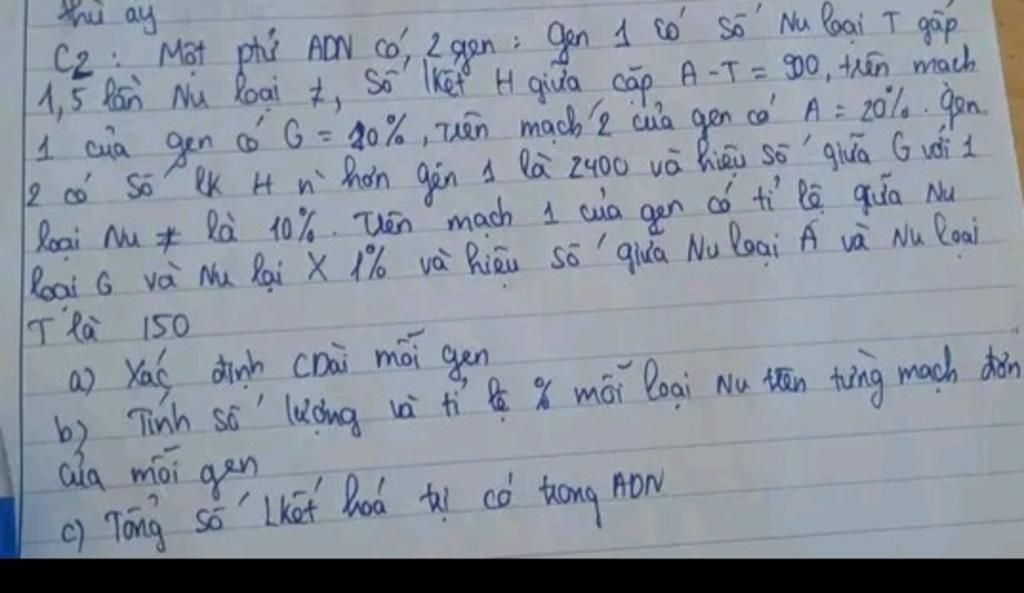 thù ay
C2: Một phứ ADN có, 2 gen: gen 1 có số Nu loại T gấp
1,5 lần Nu loại ≠, Số lkết H giữa cặp A-T = 900, trên mạch
1 của gen có G = 20%, trên mạch 2 của gen có A = 20%. gen
2 có số lk H n' hơn gen 1 là 2400 và hiệu số giữa G với 1
loại Nu ≠ là 10%. Trên mạch 1 của gen có tỉ lệ giữa Nu
loại G và Nu lại X 1% và hiệu số giữa Nu loại A và Nu loại
T là 150
a) Xác định CDài mỗi gen
b) Tính số lượng và tỉ lệ % mỗi loại Nu trên từng mạch đơn
của mỗi gen
c) Tổng số Lkết hoá trị có trong ADN